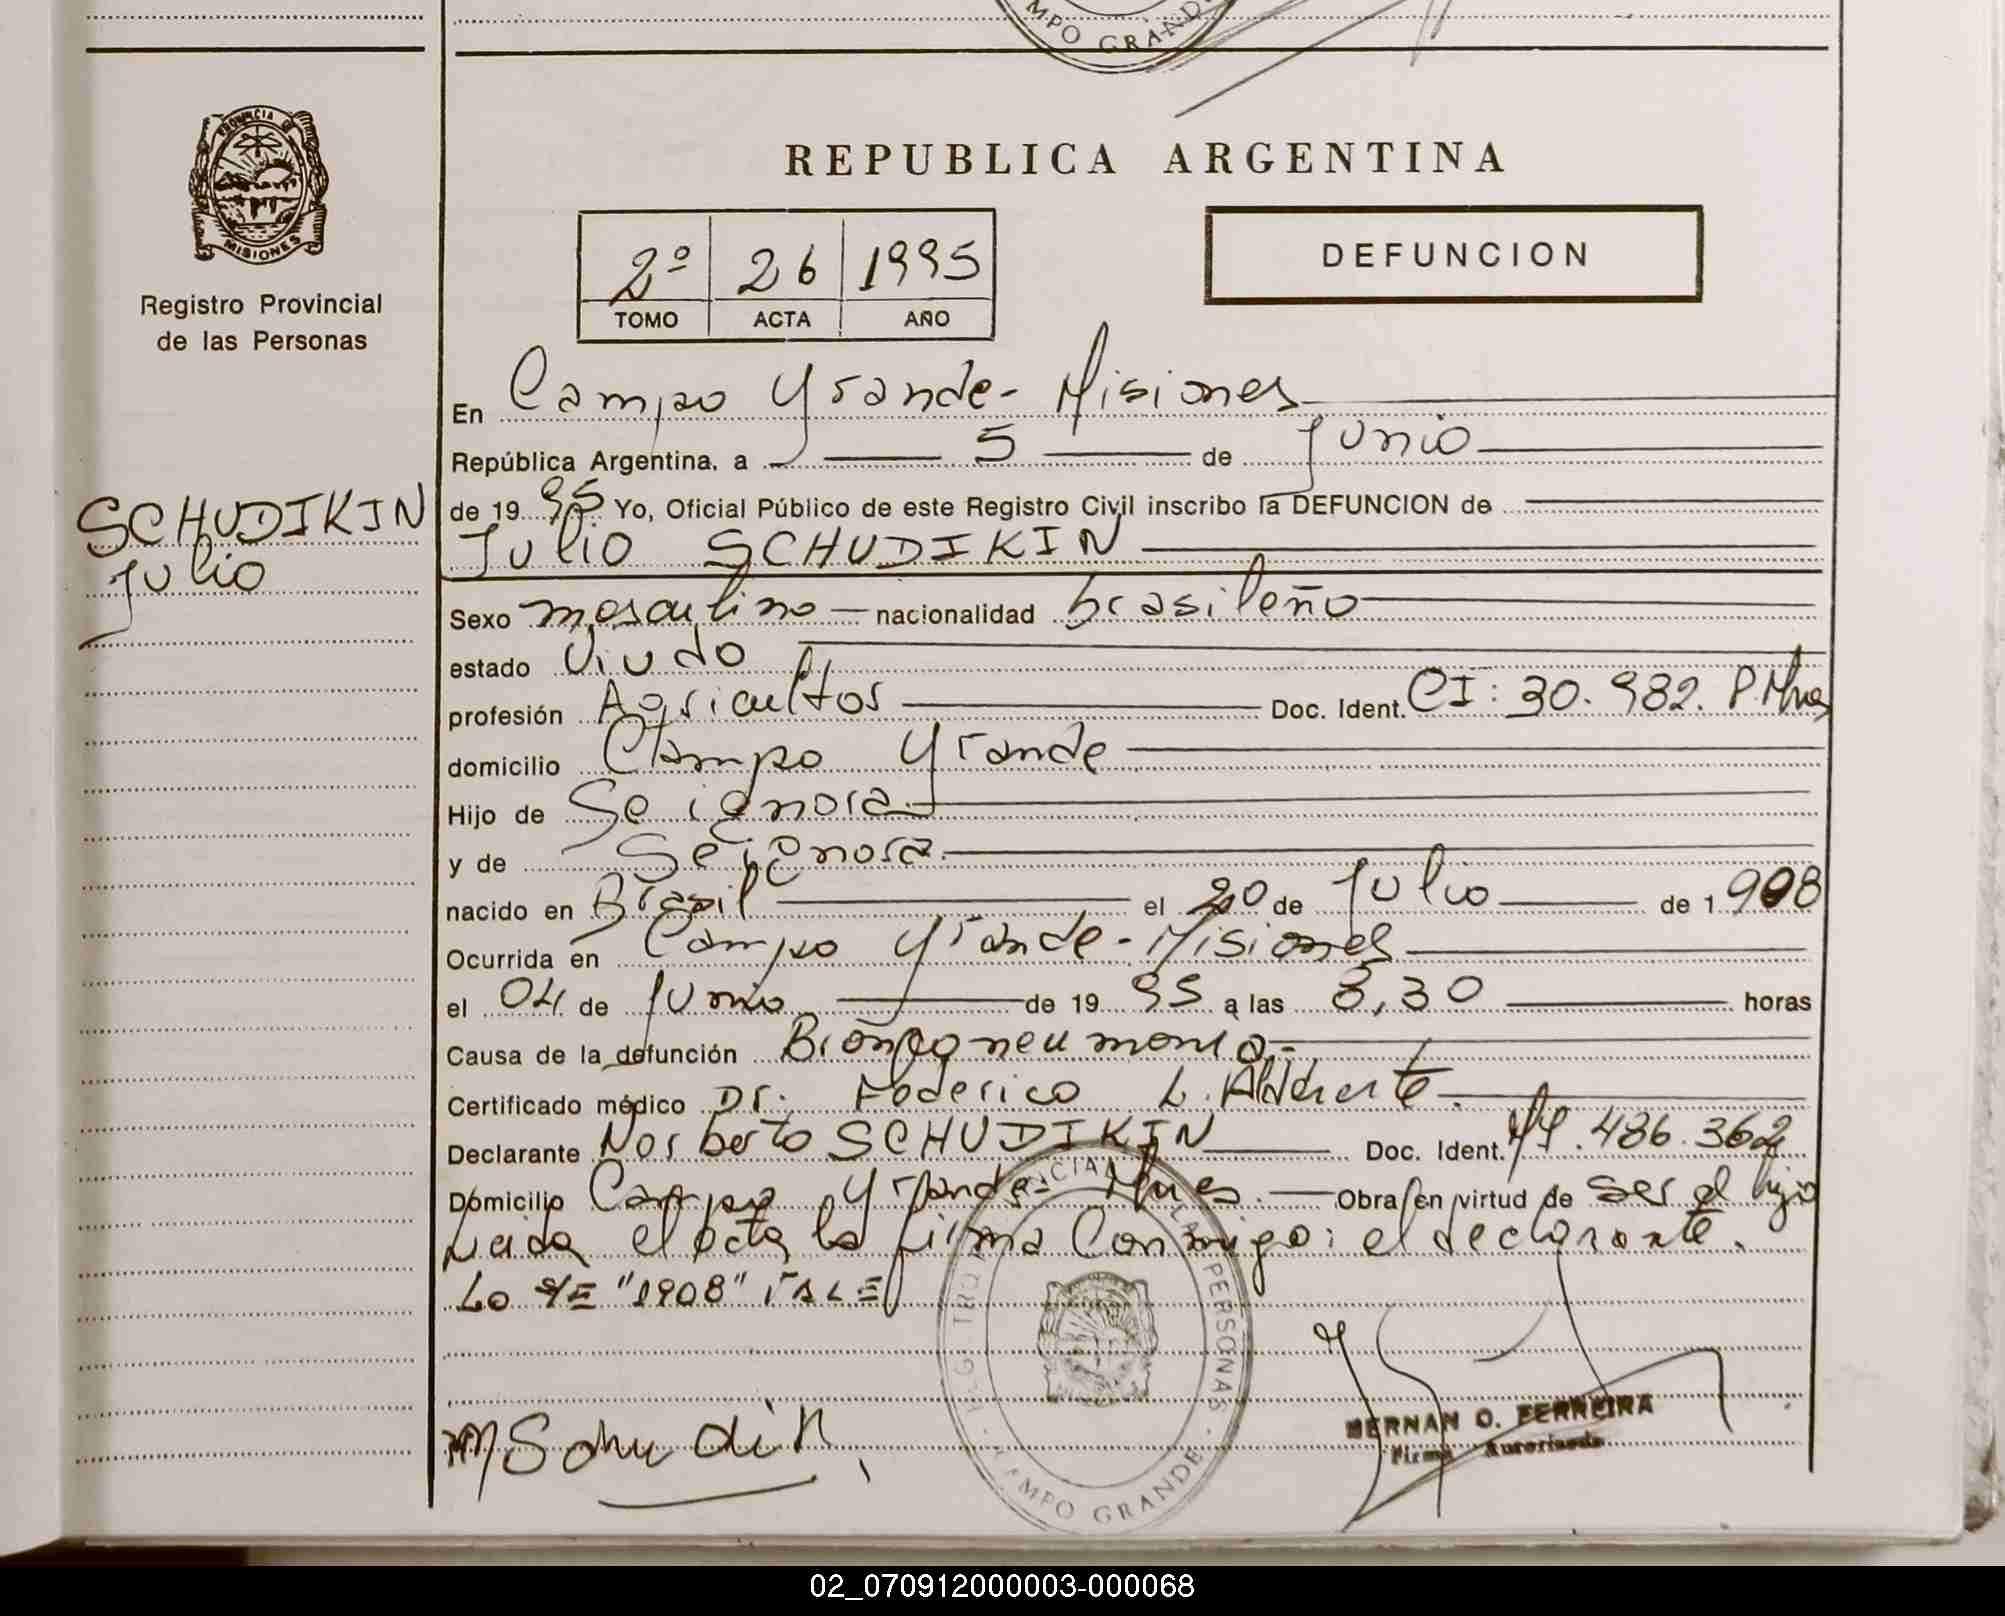 MPO GRANDE
PROVINCIA DE
MISIONES
Registro Provincial
de las Personas
REPUBLICA ARGENTINA
2º 26 1995
TOMO ACTA AÑO
DEFUNCION
En Campo Grande - Misiones
República Argentina, a 5 de Junio
de 1995 Yo, Oficial Público de este Registro Civil inscribo la DEFUNCION de
SCHUDIKIN
Julio
Julio SCHUDIKIN
Sexo masculino nacionalidad brasileño
estado Viudo
profesión Agricultor Doc. Ident. CI: 30.982. P.Mnes
domicilio Campo Grande
Hijo de Se ignora
y de Se ignora
nacido en Brasil el 20 de Julio de 1908
Ocurrida en Campo Grande - Misiones
el 04 de Junio de 1995 a las 8,30 horas
Causa de la defunción Bronconeumonia.-
Certificado médico Dr. Federico L.
Declarante Norberto SCHUDIKIN Doc. Ident. .486.362
Domicilio Campo Grande - Mnes. Obra en virtud de ser el hijo
Leida el acta la firma Conmigo: el declarante.
Lo S/E "1908" VALE
REGISTRO PROVINCIAL DE LAS PERSONAS - CAMPO GRANDE -
HERNAN O. FERREIRA
Firma Autorizada
02_070912000003-000068